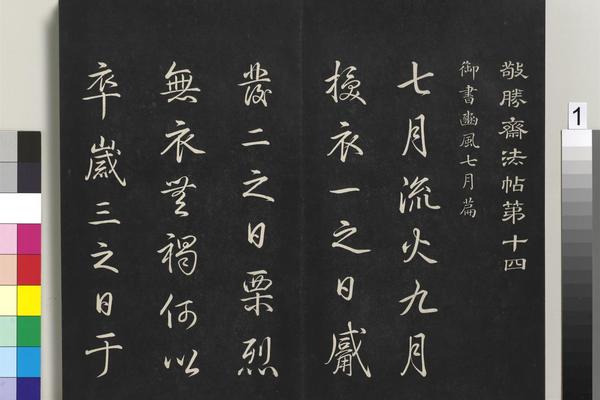 敬勝齋法帖第十四
御書豳風七月篇
七月流火九月
授衣一之日觱
發二之日栗烈
無衣無褐何以
卒歲三之日于
1